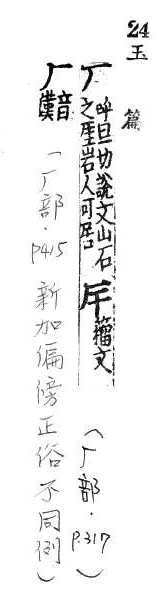 24
玉篇
厂 呼旦切說文山石
之厓岩人可居 厈 籀文 (厂部·P.317)
厂 音漢 (厂部·P415 新加偏傍正俗不同例)